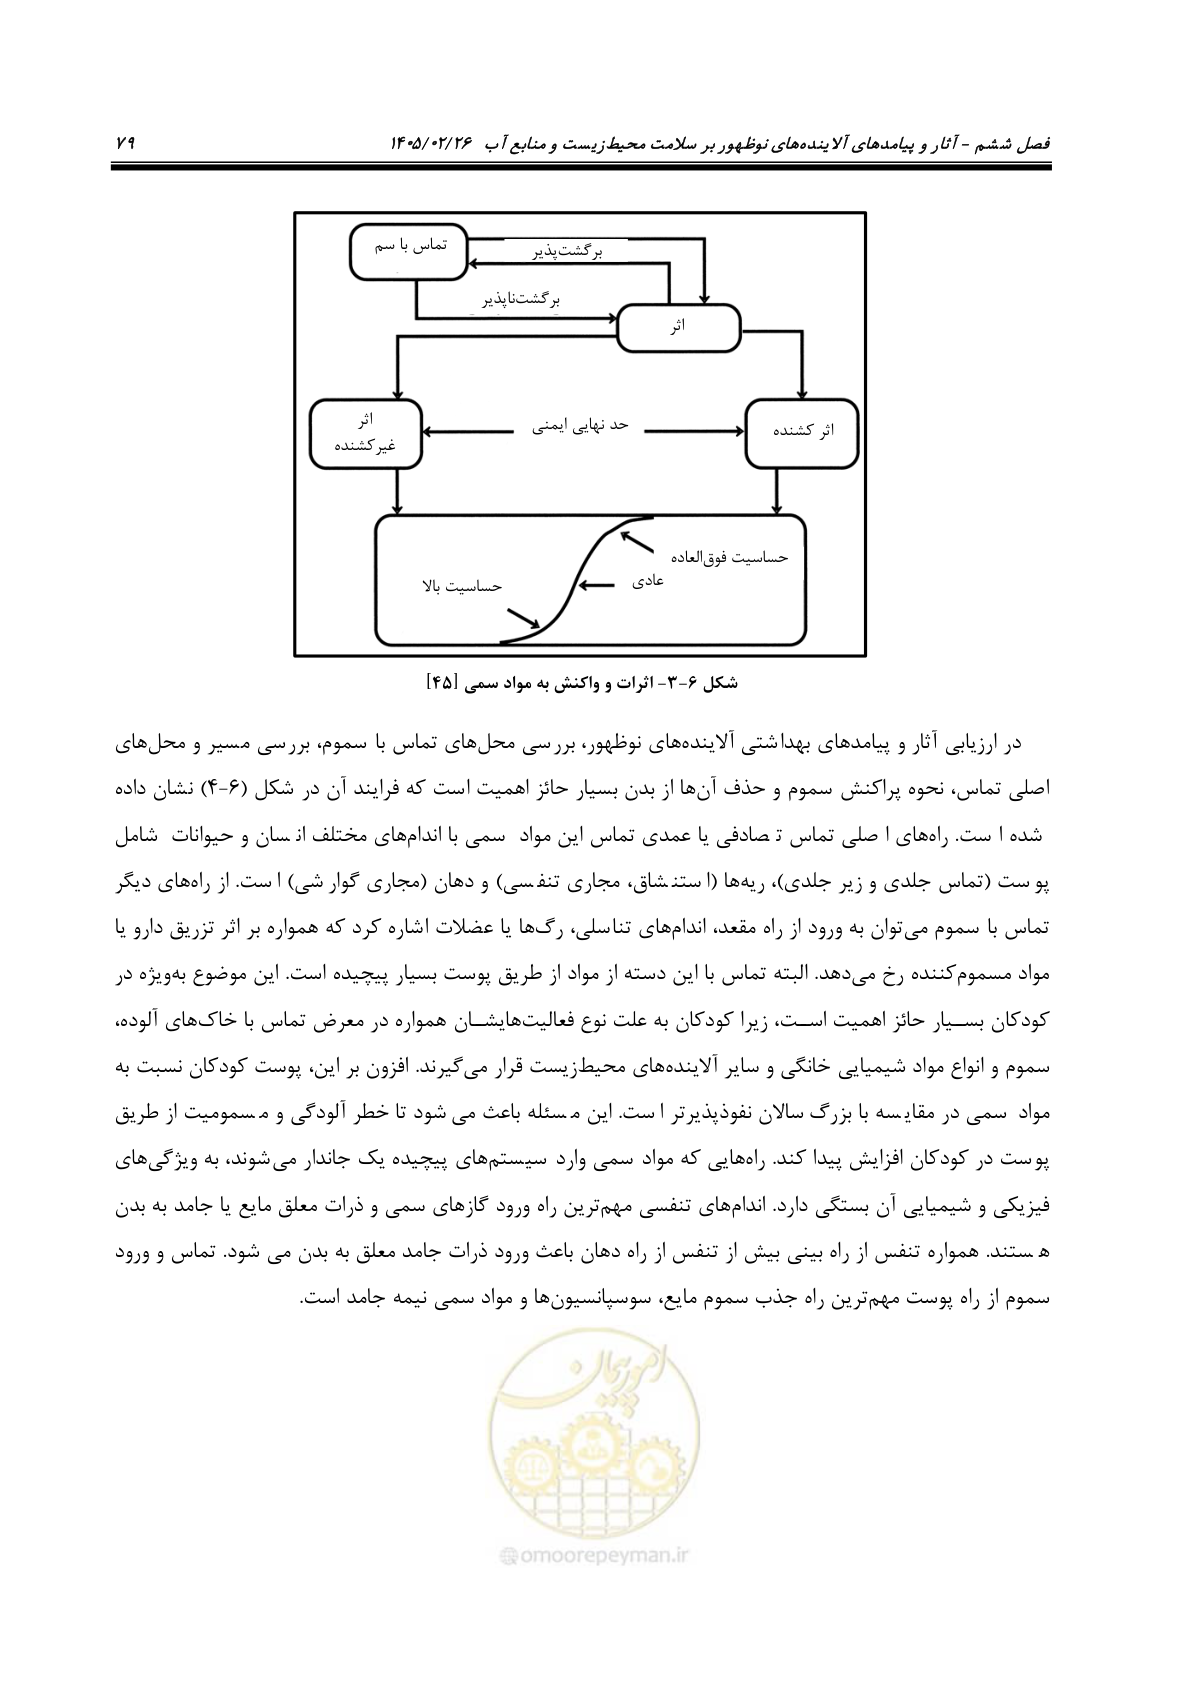 فصل ششم - آثار و پیامدهای آلاینده‌های نوظهور بر سلامت محیط‌زیست و منابع آب ۱۴۰۵/۰۲/۲۶ ۷۹
تماس با سم
برگشت‌پذیر
برگشت‌ناپذیر
اثر
اثر
غیرکشنده
حد نهایی ایمنی
اثر کشنده
حساسیت فوق‌العاده
عادی
حساسیت بالا
شکل ۶-۳- اثرات و واکنش به مواد سمی [۴۵]
در ارزیابی آثار و پیامدهای بهداشتی آلاینده‌های نوظهور، بررسی محل‌های تماس با سموم، بررسی مسیر و محل‌های
اصلی تماس، نحوه پراکنش سموم و حذف آن‌ها از بدن بسیار حائز اهمیت است که فرایند آن در شکل (۶-۴) نشان داده
شده است. راه‌های اصلی تماس تصادفی یا عمدی تماس این مواد سمی با اندام‌های مختلف انسان و حیوانات شامل
پوست (تماس جلدی و زیر جلدی)، ریه‌ها (استنشاق، مجاری تنفسی) و دهان (مجاری گوارشی) است. از راه‌های دیگر
تماس با سموم می‌توان به ورود از راه مقعد، اندام‌های تناسلی، رگ‌ها یا عضلات اشاره کرد که همواره بر اثر تزریق دارو یا
مواد مسموم‌کننده رخ می‌دهد. البته تماس با این دسته از مواد از طریق پوست بسیار پیچیده است. این موضوع به‌ویژه در
کودکان بسیار حائز اهمیت است، زیرا کودکان به علت نوع فعالیت‌هایشان همواره در معرض تماس با خاک‌های آلوده،
سموم و انواع مواد شیمیایی خانگی و سایر آلاینده‌های محیط‌زیست قرار می‌گیرند. افزون بر این، پوست کودکان نسبت به
مواد سمی در مقایسه با بزرگ سالان نفوذپذیرتر است. این مسئله باعث می شود تا خطر آلودگی و مسمومیت از طریق
پوست در کودکان افزایش پیدا کند. راه‌هایی که مواد سمی وارد سیستم‌های پیچیده یک جاندار می‌شوند، به ویژگی‌های
فیزیکی و شیمیایی آن بستگی دارد. اندام‌های تنفسی مهم‌ترین راه ورود گازهای سمی و ذرات معلق مایع یا جامد به بدن
هستند. همواره تنفس از راه بینی بیش از تنفس از راه دهان باعث ورود ذرات جامد معلق به بدن می شود. تماس و ورود
سموم از راه پوست مهم‌ترین راه جذب سموم مایع، سوسپانسیون‌ها و مواد سمی نیمه جامد است.
امور پیمان
@omoorepeyman.ir